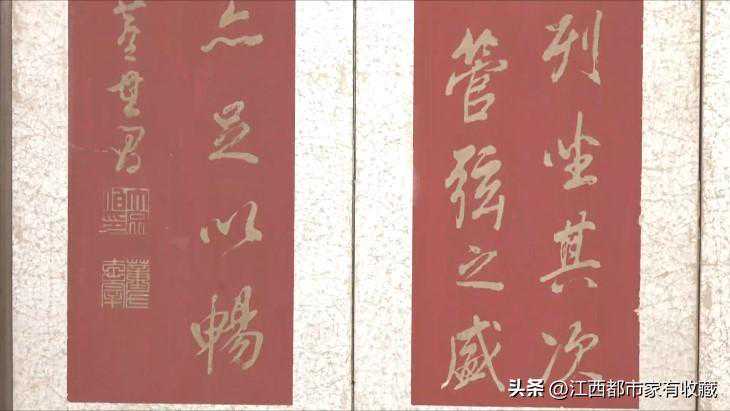 列坐其次
管弦之盛
亦足以暢
董其昌
头条 @江西都市家有收藏